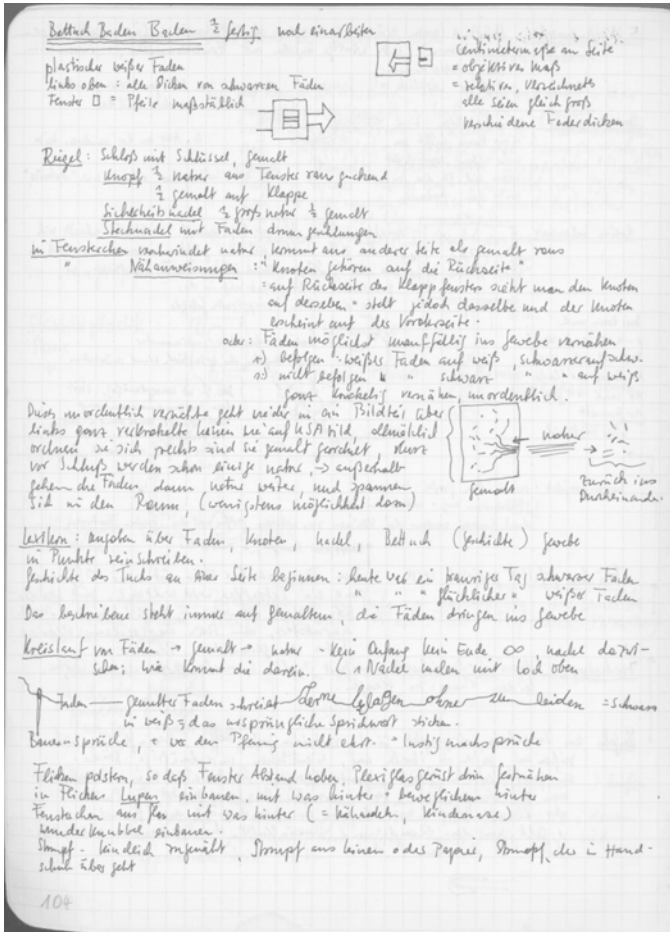 Bettuch Baden Baden ½ fertig noch einarbeiten
Centimetermaße am Seite
plastischer weißer Faden
= objektives Maß
links oben: alle Dicken von schwarzen Fäden
= relativ, verzeichnets
Fenster □ = Pfeile maßstäblich
alle seien gleich groß
verschiedene Federdicken
Riegel: Schloß mit Schlüssel, gemalt
Knopf ½ natur aus Fenster raus guckend
½ gemalt auf Klappe
Sicherheitsnadel ½ groß natur ½ gemalt
Stecknadel mit Faden
in Fensterchen verschwindet natur, kommt aus anderer Seite als gemalt raus
" Nähanweisungen: "Knoten gehören auf die Rückseite"
= auf Rückseite des Klappfensters sieht man den Knoten
auf derselben = steht jedoch dasselbe und der Knoten
erscheint auf der Vorderseite.
oder: Fäden möglichst unauffällig ins Gewebe vernähen
1) befolgen: weißer Faden auf weiß, schwarzer auf schw.
2) nicht befolgen " " schwarz " " auf weiß
ganz knubbelig vernähen, unordentlich.
Dieses unordentlich vernähte geht wieder in ein Bildteil über
links ganz wie auf USA Bild, allmählich
ordnen sie sich, rechts sind sie gemalt geordnet, kurz
vor Schluß werden schon einige natur, → außerhalb
gehen die Fäden dann natur weiter, und spannen
sich in den Raum, (wenigstens Möglichkeit dazu)
natur
gemalt
zurück ins
Durcheinander.
Lexikon: Angaben über Faden, Knoten, Nadel, Bettuch (Geschichte) Gewebe
in Punkte reinschreiben.
Geschichte des Tuchs an einer Seite beginnen: heute war ein trauriger Tag schwarzer Faden
" " " glücklicher " weißer Faden
Das beschriebene steht immer auf Gemaltem, die Fäden dringen ins Gewebe
Kreislauf von Fäden → gemalt → natur - kein Anfang kein Ende, ∞, Nadel dazwi-
schen: wie kommt die darein. (1 Nadel malen mit Loch oben
Faden — gemalter Faden schreibt Lerne klagen ohne zu leiden = schwarz
in weiß = das ursprüngliche Sprichwort sticken.
Bauernsprüche, + wer den Pfennig nicht ehrt. = lustig machsprüche
Flicken polstern, so daß Fenster Abstand haben, Plexiglasgerüst drin festnähen
in Flicken Lupen einbauen, mit was hinter = beweglichem hinter
Fensterchen aus Glas mit was hinter (= , Kindernase)
einbauen.
Strumpf - kindlich zugenäht, Strumpf aus Leinen oder Papier, Strumpf, der in Hand-
schuh übergeht
104